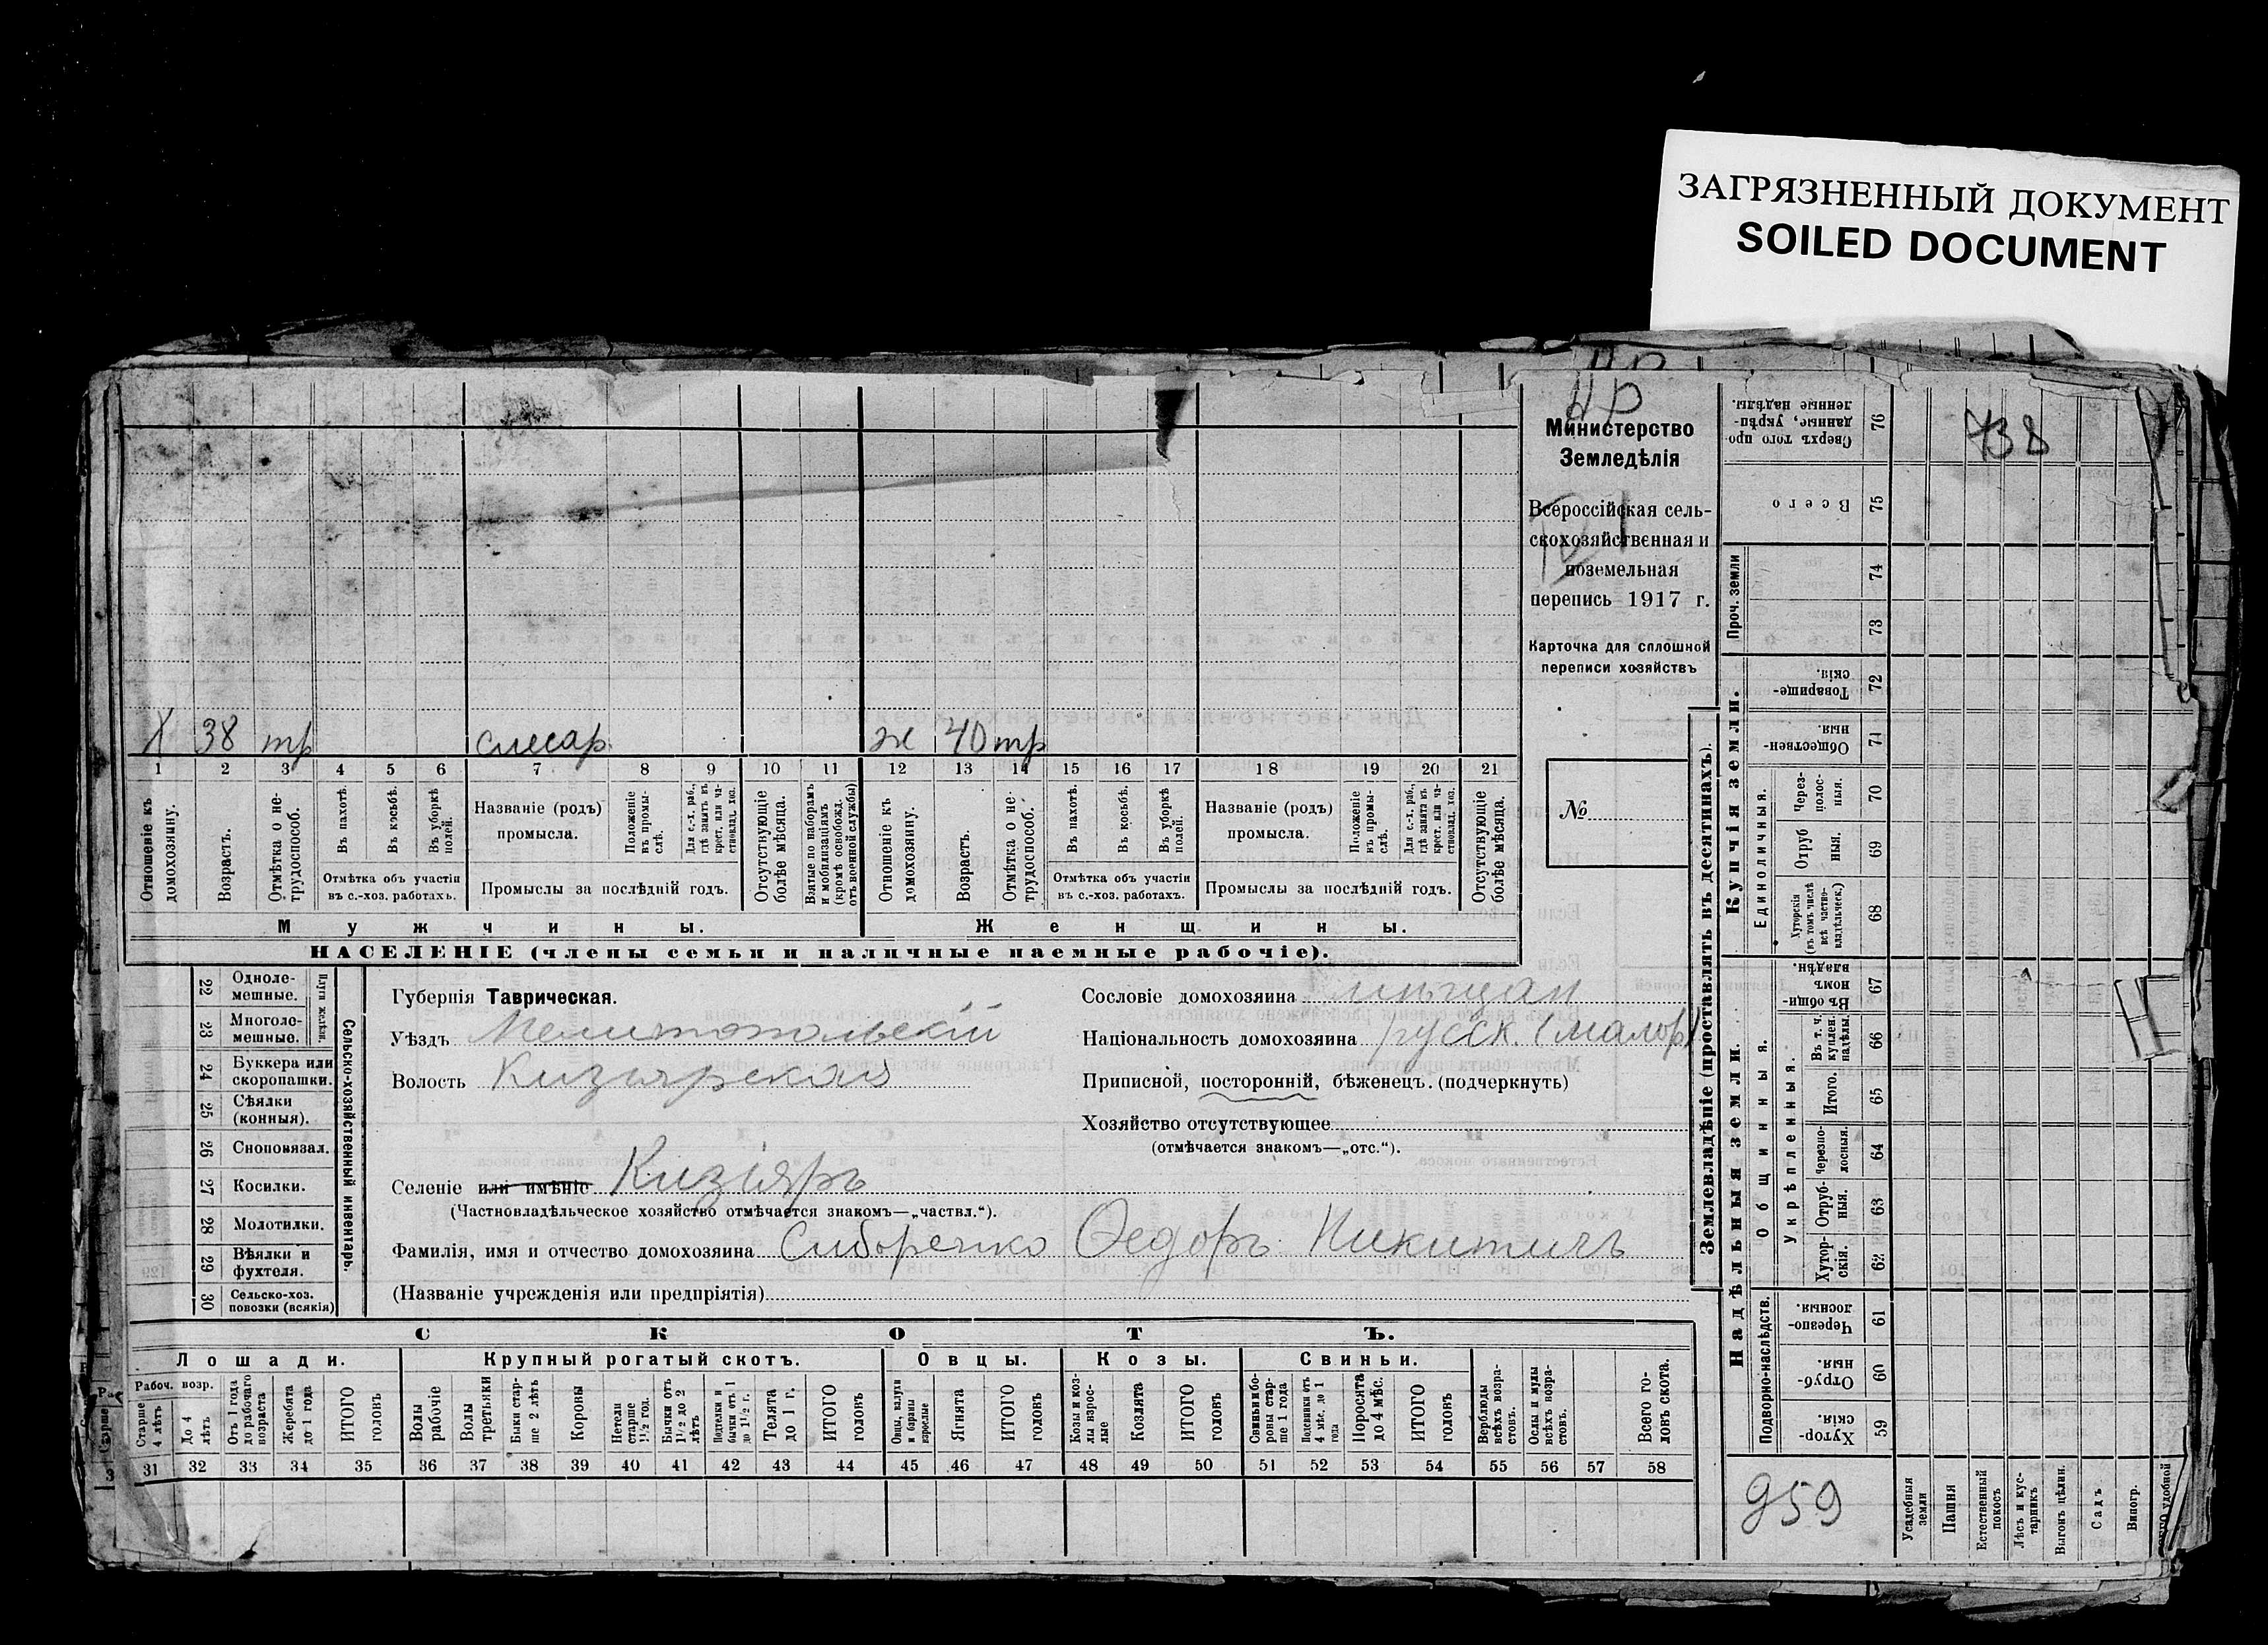 ЗАГРЯЗНЕННЫЙ ДОКУМЕНТ
SOILED DOCUMENT
Министерство
Земледѣлія
Всероссійская сель-
скохозяйственная и
поземельная
перепись 1917 г.
Карточка для сплошной
переписи хозяйствъ
№
738
Х 38 тр слесар. ж 40 тр
1 2 3 4 5 6 7 8 9 10 11 12 13 14 15 16 17 18 19 20 21
Отношеніе къ домохозяину.
Возрастъ.
Отмѣтка о не-трудоспособ.
Въ пахотѣ.
Въ косьбѣ.
Въ уборкѣ полей.
Отмѣтка объ участіи въ с.-хоз. работахъ.
Названіе (родъ) промысла.
Положеніе въ промы-слѣ.
Для с.-х. раб., гдѣ занятъ въ крест. или ча-стновлад. хоз.
Промыслы за послѣдній годъ.
Отсутствующіе болѣе мѣсяца.
Взятые по наборамъ и мобилизаціямъ (кромѣ освобожд. отъ военной службы)
Отношеніе къ домохозяину.
Возрастъ.
Отмѣтка о не-трудоспособ.
Въ пахотѣ.
Въ косьбѣ.
Въ уборкѣ полей.
Отмѣтка объ участіи въ с.-хоз. работахъ.
Названіе (родъ) промысла.
Положеніе въ промы-слѣ.
Для с.-х. раб., гдѣ занятъ въ крест. или ча-стновлад. хоз.
Промыслы за послѣдній годъ.
Отсутствующіе болѣе мѣсяца.
Мужчины. Женщины.
НАСЕЛЕНІЕ (члены семьи и наличные наемные рабочіе).
22 Одноле-мешные.
23 Многоле-мешные.
Плуги желѣзн.
24 Буккера или скоропашки.
25 Сѣялки (конныя).
26 Сноповязал.
27 Косилки.
28 Молотилки.
29 Вѣялки и фухтеля.
30 Сельско-хоз. повозки (всякія)
Сельско-хозяйственный инвентарь.
Губернія Таврическая.
Уѣздъ Мелитопольскій
Волость Кизіярская
Селеніе или имѣніе Кизіяръ
(Частновладѣльческое хозяйство отмѣчается знакомъ—„частвл.“).
Фамилія, имя и отчество домохозяина Сиборенко Ѳедоръ Никитичъ
(Названіе учрежденія или предпріятія)
Сословіе домохозяина мѣщан
Національность домохозяина русск. (малор)
Приписной, посторонній, бѣженецъ. (подчеркнуть)
Хозяйство отсутствующее
(отмѣчается знакомъ—„отс.“).
СКОТЪ.
Лошади. Крупный рогатый скотъ. Овцы. Козы. Свиньи.
Рабоч. возр.
Старше 4 лѣтъ
До 4 лѣтъ
Отъ 1 года до рабочаго возраста
Жеребята до 1 года
ИТОГО головъ
Волы рабочіе
Волы третьяки
Быки стар-ше 2 лѣтъ
Коровы
Нетели старше 1½ год.
Бычки отъ 1½ до 2 лѣтъ
Подтелки и бычки отъ 1 до 1½ г.
Телята до 1 г.
ИТОГО головъ
Овцы, валухи и бараны взрослые
Ягнята
ИТОГО головъ
Козы и коз-лы взрос-лые
Козлята
ИТОГО головъ
Свиньи и бо-ровы стар-ше 1 года
Подсвинки отъ 4 мѣс. до 1 года
Поросята до 4 мѣс.
ИТОГО головъ
Верблюды всѣхъ возра-стовъ.
Ослы и мулы всѣхъ возра-стовъ.
Всего го-ловъ скота.
31 32 33 34 35 36 37 38 39 40 41 42 43 44 45 46 47 48 49 50 51 52 53 54 55 56 57 58
Землевладѣніе (проставлять въ десятинахъ).
Сверхъ того про-данные, укрѣп-ленные надѣлы. 76
Всего 75
Проч. земли 74 73
Купчія земли.
Товарище-скія. 72
Обществен-ныя 71
Единоличныя.
Через-полос-ныя. 70
Отруб ныя. 69
Хуторскія (въ томъ числѣ всѣ частно-владѣльческ.) 68
Надѣльныя земли.
Общинныя.
Въ общи-номъ владѣн. 67
Укрѣпленныя.
Въ т. ч. куплен. надѣлы. 66
Итого. 65
Черезпо-лосныя. 64
Отруб-ныя. 63
Хутор-скія. 62
Подворно-наслѣдств.
Черезпо-лосныя. 61
Отруб-ныя. 60
Хутор-скія. 59
959
Усадебныя земли
Пашня
Естественный покосъ
Лѣсъ и кус-тарникъ
Выгонъ цѣлин.
Садъ
Виногр.